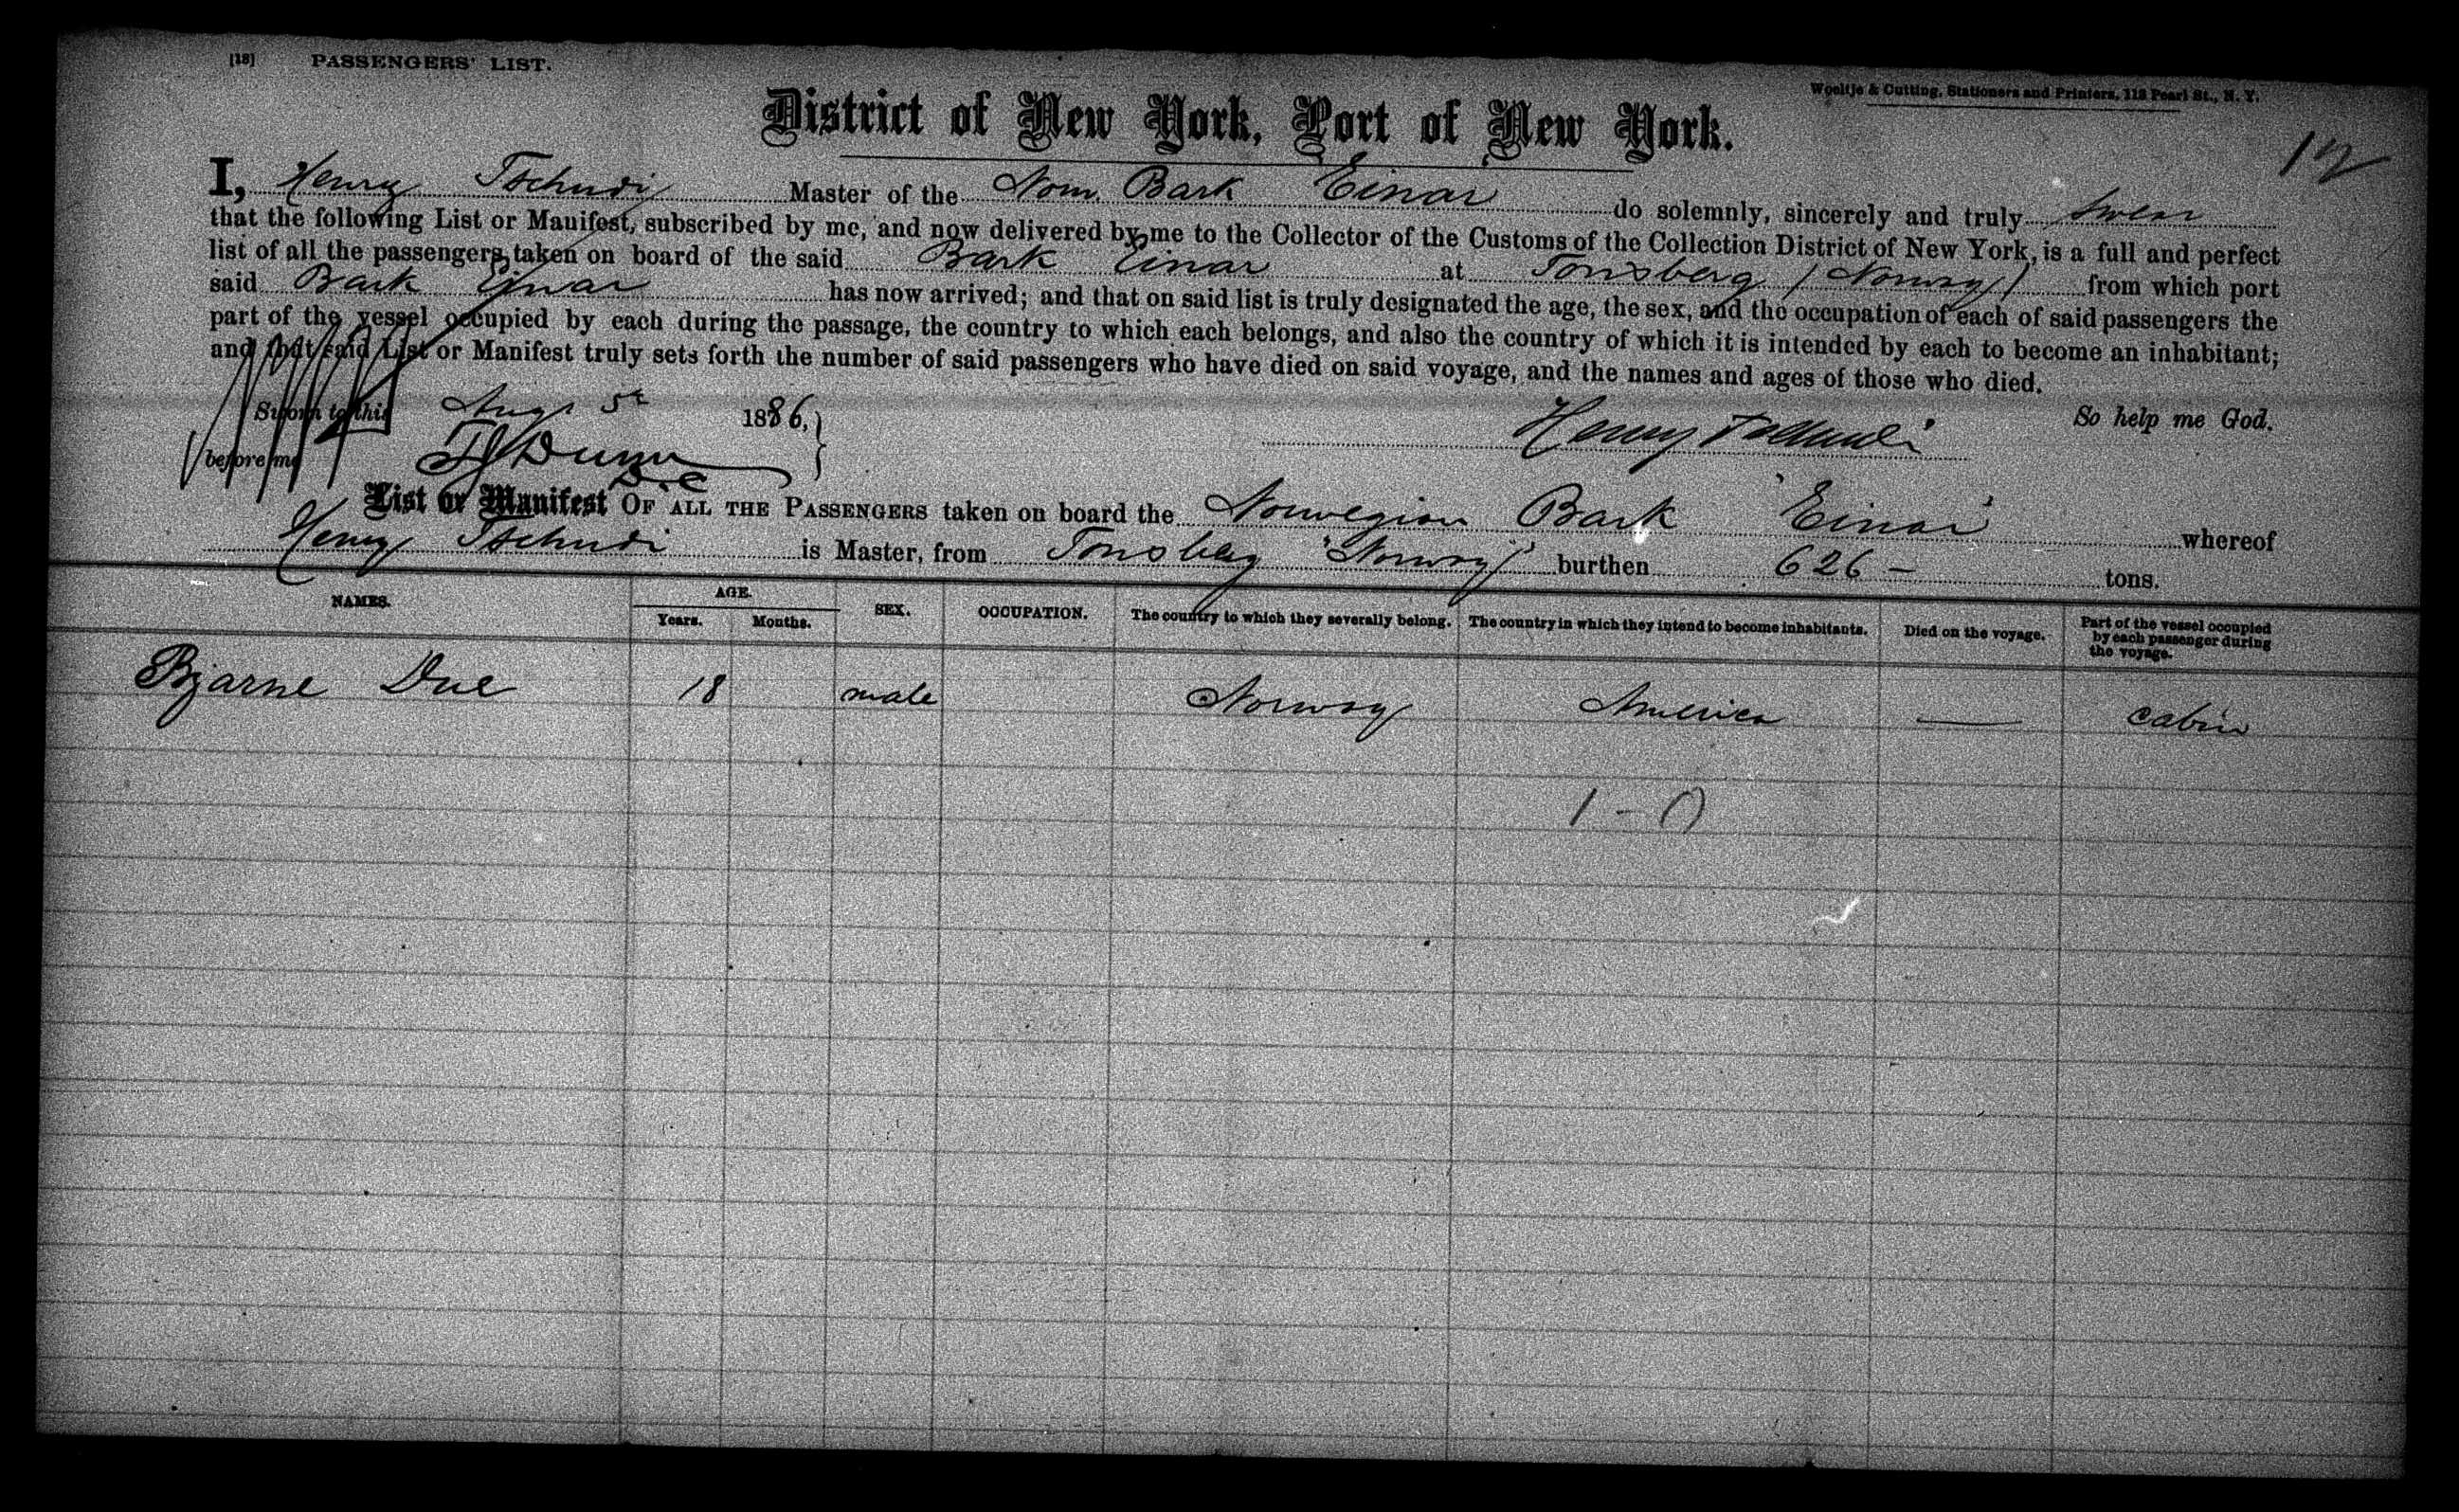 [18] PASSENGERS' LIST.
Woeltje & Cutting, Stationers and Printers, 112 Pearl St., N. Y.
District of New York, Port of New York.
12
I, Henry Tschudi Master of the Norw. Bark Einar do solemnly, sincerely and truly swear
that the following List or Manifest, subscribed by me, and now delivered by me to the Collector of the Customs of the Collection District of New York, is a full and perfect
list of all the passengers taken on board of the said Bark Einar at Tonsberg (Norway) from which port
said Bark Einar has now arrived; and that on said list is truly designated the age, the sex, and the occupation of each of said passengers the
part of the vessel occupied by each during the passage, the country to which each belongs, and also the country of which it is intended by each to become an inhabitant;
and that said List or Manifest truly sets forth the number of said passengers who have died on said voyage, and the names and ages of those who died.
Sworn to this Augt 5th 1886, So help me God.
before me Dunn Henry Tschudi
List or Manifest OF ALL THE PASSENGERS taken on board the Norwegian Bark "Einar" whereof
Henry Tschudi is Master, from Tonsberg "Norway" burthen 626 - tons.
NAMES. AGE. Years. Months. SEX. OCCUPATION. The country to which they severally belong. The country in which they intend to become inhabitants. Died on the voyage. Part of the vessel occupied by each passenger during the voyage.
Bjarne Due 18 male Norway America — cabin
1 - 0